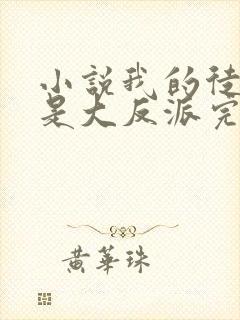 小説我的徒
是大反派完
黃華珠